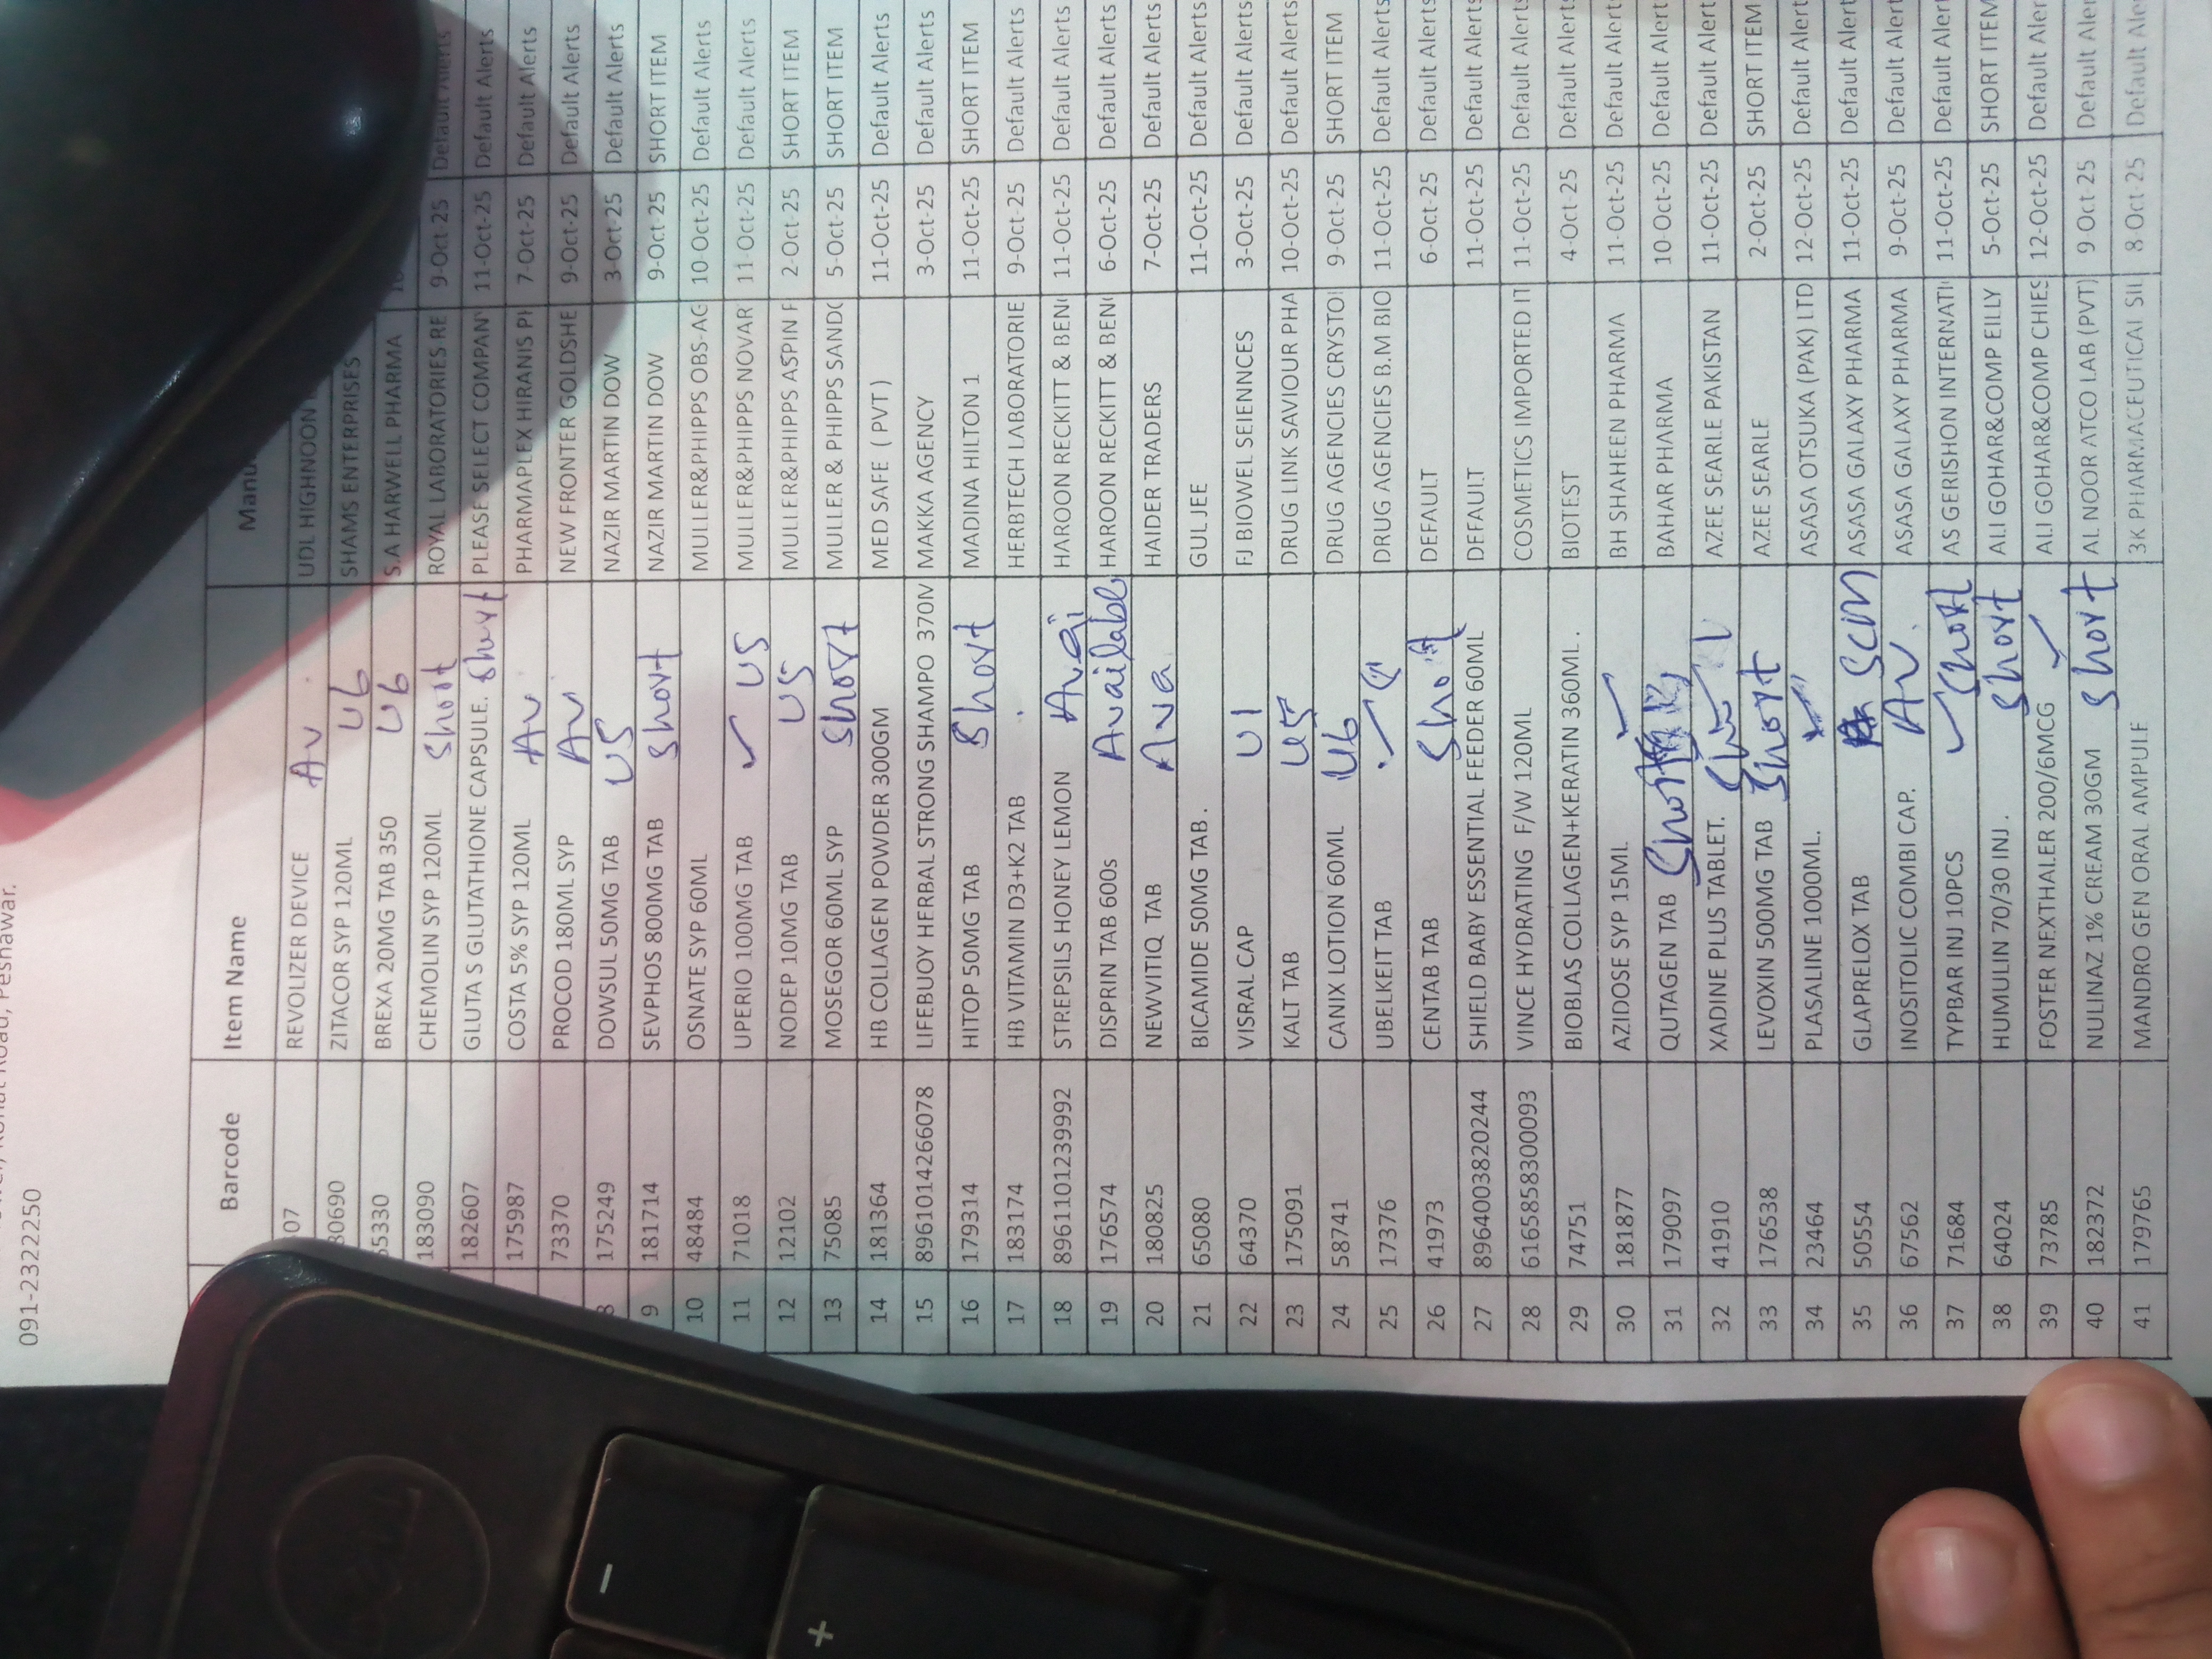 Road, Peshawar.
091-2322250
Barcode Item Name
07 REVOLIZER DEVICE Av UDL HIGHNOON
80690 ZITACOR SYP 120ML U6 SHAMS ENTERPRISES
55330 BREXA 20MG TAB 350 U6 S.A HARWELL PHARMA
183090 CHEMOLIN SYP 120ML Short ROYAL LABORATORIES RE 9-Oct-25 Default Alerts
182607 GLUTA S GLUTATHIONE CAPSULE. Short PLEASE SELECT COMPANY 11-Oct-25 Default Alerts
175987 COSTA 5% SYP 120ML Av PHARMAPLEX HIRANIS PH 7-Oct-25 Default Alerts
73370 PROCOD 180ML SYP Av NEW FRONTER GOLDSHE 9-Oct-25 Default Alerts
8 175249 DOWSUL 50MG TAB U5 NAZIR MARTIN DOW 3-Oct-25 Default Alerts
9 181714 SEVPHOS 800MG TAB Short NAZIR MARTIN DOW 9-Oct-25 SHORT ITEM
10 48484 OSNATE SYP 60ML MULLER&PHIPPS OBS-AG 10-Oct-25 Default Alerts
11 71018 UPERIO 100MG TAB ✓ U5 MULLER&PHIPPS NOVAR 11-Oct-25 Default Alerts
12 12102 NODEP 10MG TAB U5 MULLER&PHIPPS ASPIN F 2-Oct-25 SHORT ITEM
13 75085 MOSEGOR 60ML SYP Short MULLER & PHIPPS SANDO 5-Oct-25 SHORT ITEM
14 181364 HB COLLAGEN POWDER 300GM MED SAFE ( PVT ) 11-Oct-25 Default Alerts
15 8961014266078 LIFEBUOY HERBAL STRONG SHAMPO 370M MAKKA AGENCY 3-Oct-25 Default Alerts
16 179314 HITOP 50MG TAB Short MADINA HILTON 1 11-Oct-25 SHORT ITEM
17 183174 HB VITAMIN D3+K2 TAB HERBTECH LABORATORIE 9-Oct-25 Default Alerts
18 8961101239992 STREPSILS HONEY LEMON Avai HAROON RECKITT & BEN 11-Oct-25 Default Alerts
19 176574 DISPRIN TAB 600s Available HAROON RECKITT & BEN 6-Oct-25 Default Alerts
20 180825 NEWVITIQ TAB Ava HAIDER TRADERS 7-Oct-25 Default Alerts
21 65080 BICAMIDE 50MG TAB. GULJEE 11-Oct-25 Default Alerts
22 64370 VISRAL CAP U1 FJ BIOWEL SEIENNCES 3-Oct-25 Default Alerts
23 175091 KALT TAB U5 DRUG LINK SAVIOUR PHA 10-Oct-25 Default Alerts
24 58741 CANIX LOTION 60ML U6 DRUG AGENCIES CRYSTO 9-Oct-25 SHORT ITEM
25 17376 UBELKEIT TAB ✓ DRUG AGENCIES B.M BIO 11-Oct-25 Default Alerts
26 41973 CENTAB TAB Short DEFAULT 6-Oct-25 Default Alerts
27 8964003820244 SHIELD BABY ESSENTIAL FEEDER 60ML DEFAULT 11-Oct-25 Default Alerts
28 6165858300093 VINCE HYDRATING F/W 120ML COSMETICS IMPORTED IT 11-Oct-25 Default Alerts
29 74751 BIOBLAS COLLAGEN+KERATIN 360ML . BIOTEST 4-Oct-25 Default Alerts
30 181877 AZIDOSE SYP 15ML ✓ BH SHAHEEN PHARMA 11-Oct-25 Default Alerts
31 179097 QUTAGEN TAB Short BAHAR PHARMA 10-Oct-25 Default Alert
32 41910 XADINE PLUS TABLET. AZEE SEARLE PAKISTAN 11-Oct-25 Default Alert
33 176538 LEVOXIN 500MG TAB Short AZEE SEARLE 2-Oct-25 SHORT ITEM
34 23464 PLASALINE 1000ML. ASASA OTSUKA (PAK) LTD 12-Oct-25 Default Alert
35 50554 GLAPRELOX TAB ASASA GALAXY PHARMA 11-Oct-25 Default Alert
36 67562 INOSITOLIC COMBI CAP. AV. ASASA GALAXY PHARMA 9-Oct-25 Default Alert
37 71684 TYPBAR INJ 10PCS ✓ Short AS GERISHON INTERNATI 11-Oct-25 Default Alert
38 64024 HUMULIN 70/30 INJ . Short ALI GOHAR&COMP EILLY 5-Oct-25 SHORT ITEM
39 73785 FOSTER NEXTHALER 200/6MCG ✓ ALI GOHAR&COMP CHIES 12-Oct-25 Default Aler
40 182372 NULINAZ 1% CREAM 30GM Short AL NOOR ATCO LAB (PVT) 9-Oct-25 Default Aler
41 179765 MANDRO GEN ORAL AMPULE 3K PHARMACEUTICAL SIL 8-Oct-25 Default Aler